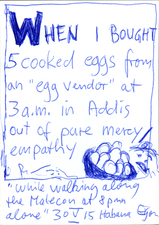 WHEN I BOUGHT
5 cooked eggs from
an "egg vendor" at
3 a.m. in Addis
out of pure mercy
empathy
"While walking along
the Malecon at 8 pm
alone" 30 V 15 Habana